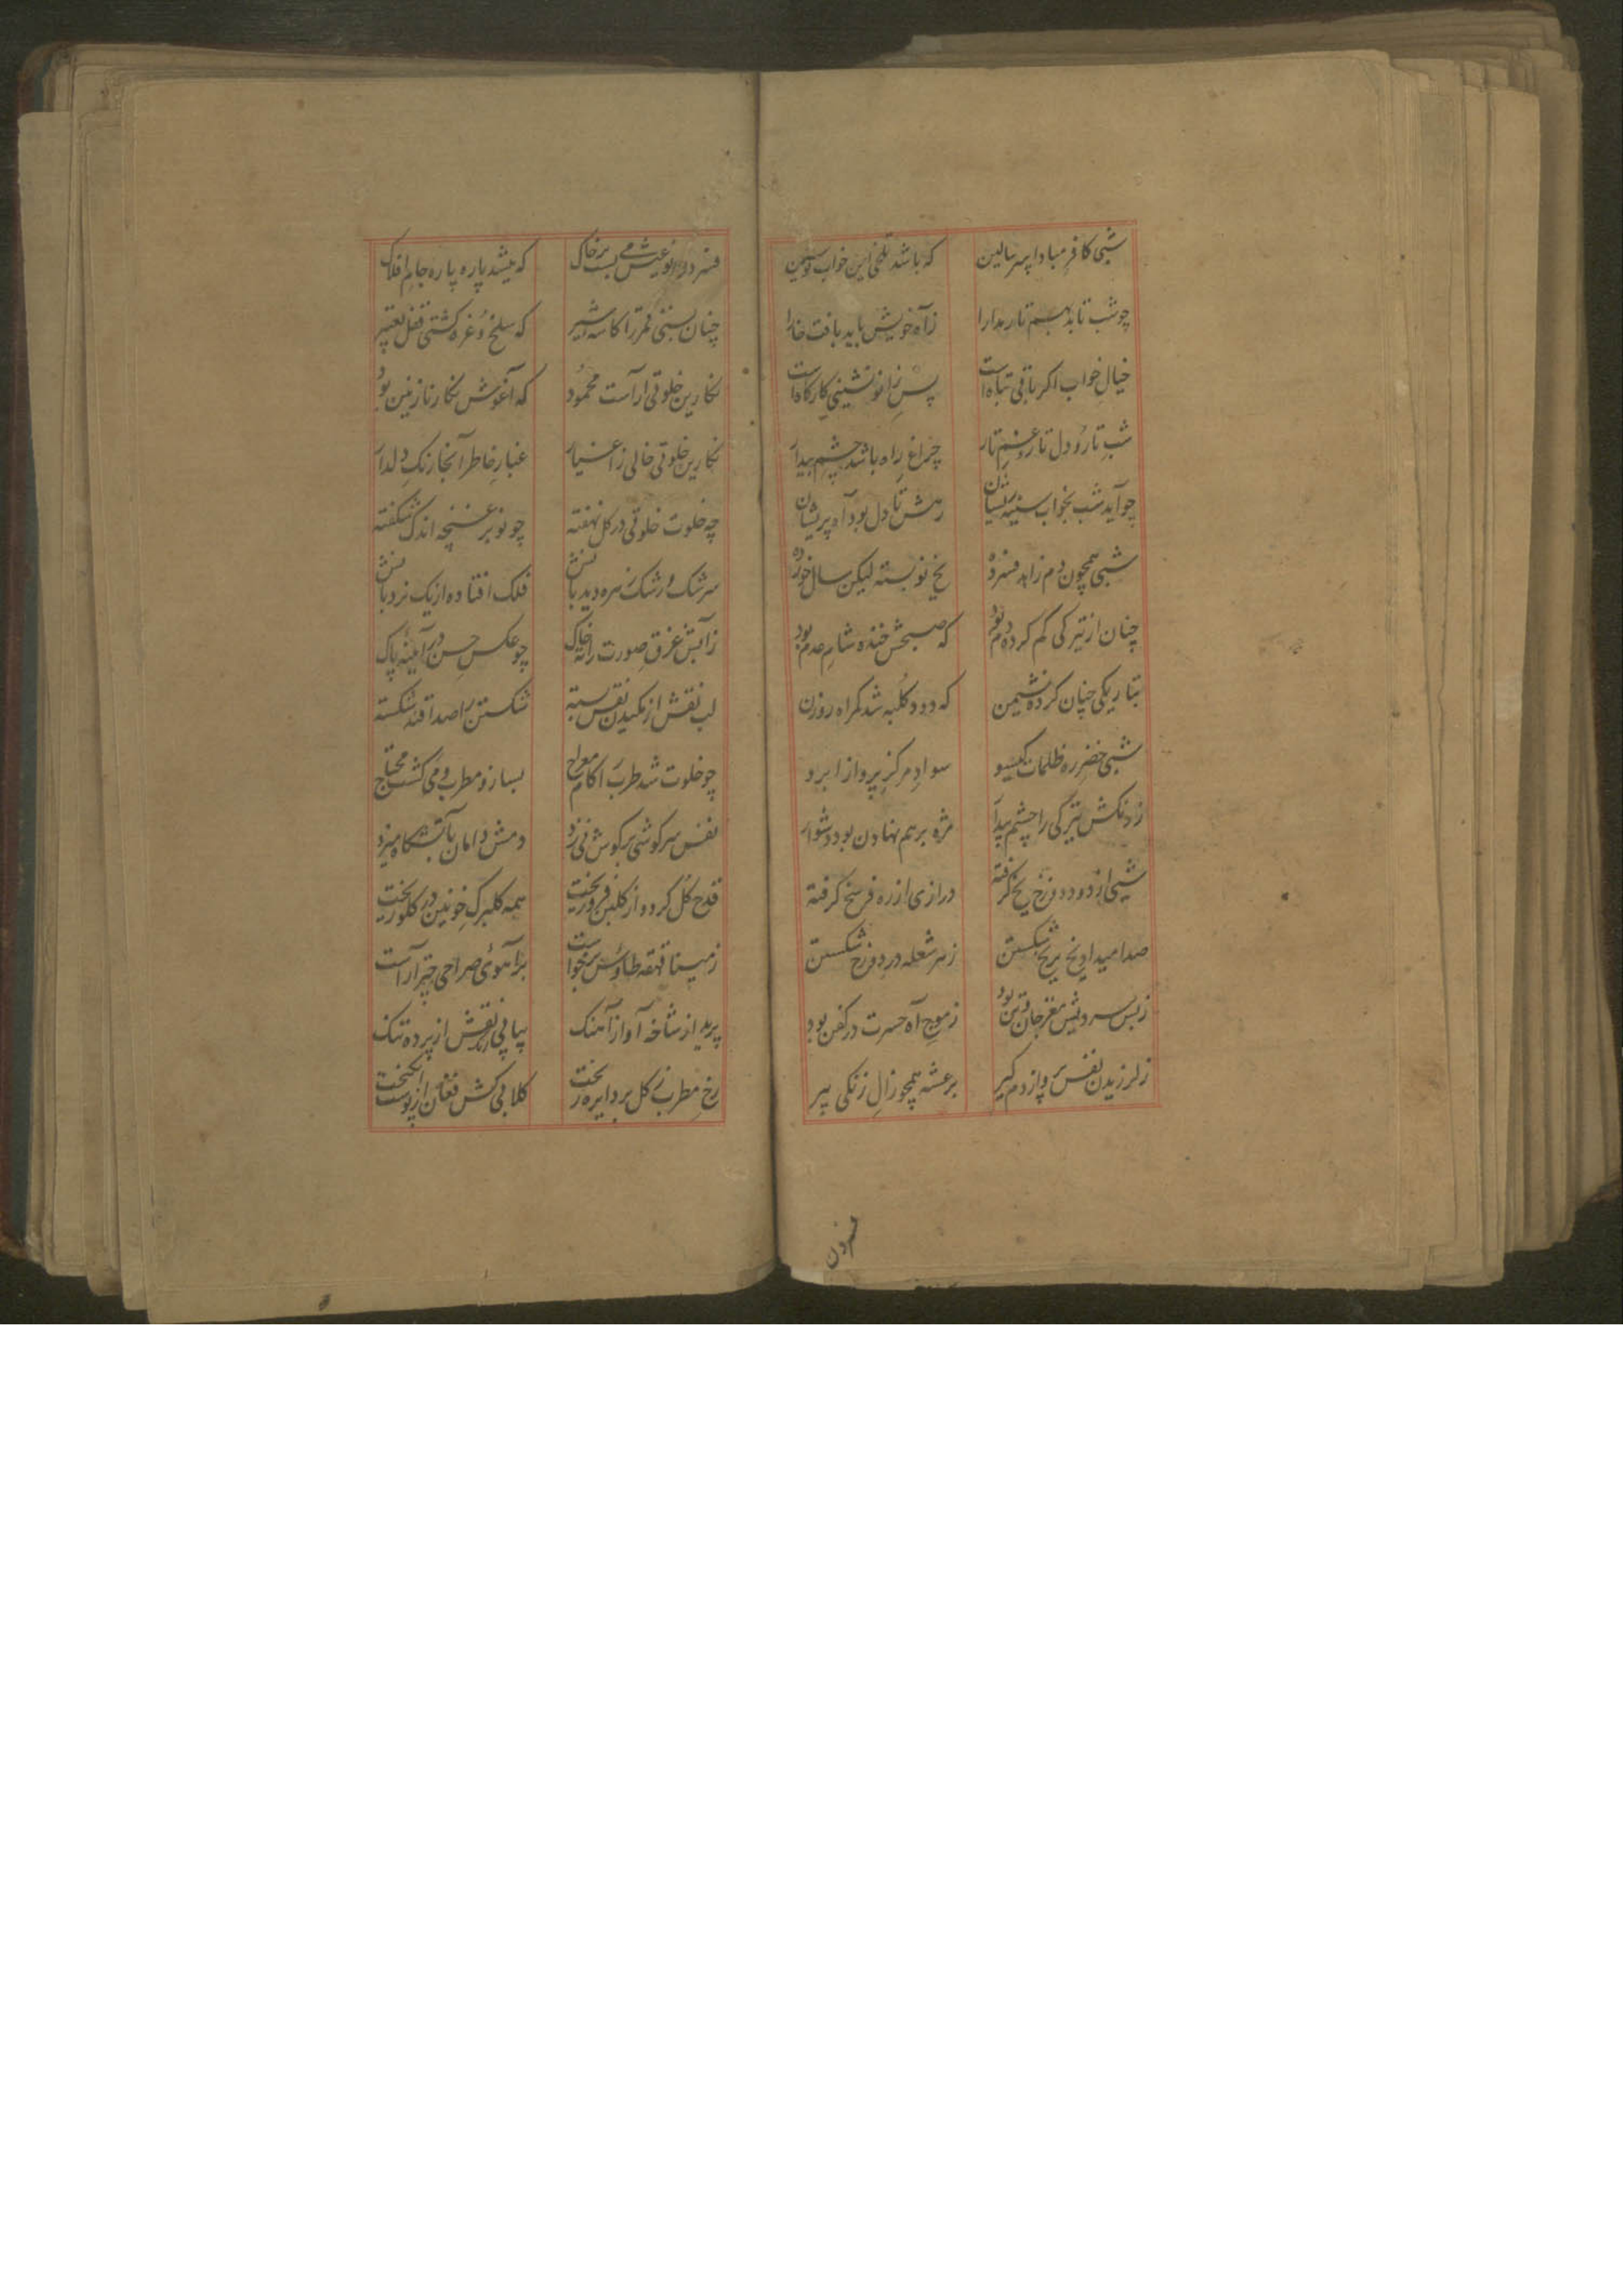 شبی کافر مبادا بسر بالین که باشد تلخی این خواب نوشین
چو شب تابد بهم تار مدارا ز آه خویش باید بافت خارا
خیال خواب اکر باقی تباه است پس زانو نشینی کارکاه است
شب تار و دل تار و غم تار چراغ راه باشد چشم بیدار
چو آید شب بخواب سینه ریشان رهش تا دل بود آه پریشان
شبی همچون دم زاهد فسرده یخ نو بسته لیکن سال خورده
چنان از تیرکی کم کرده دم بود که صبحش خنده شام عدم بود
بتاریکی چنان کرده نشیمن که دود کلبه شد کمراه روزن
شبی خضر ره ظلمات کیسو سواد مرکز پرواز ابرو
ز رنکش تیرکی را چشم بیدار مژه بر هم نهادن بود دشوار
شبی از دود دوزخ یخ کرفته درازی از ره فرسخ کرفته
صدا میداد یخ بر یخ شکستن ز هر شعله در دوزخ شکستن
ز بس سردیش مغز جان و تن بود ز موج آه حسرت در کفن بود
ز لرزیدن نفس پرواز دم کیر برعشه همچو زال زنکی پیر
فسردن
که میشد پاره پاره جام افلاک
چنان بستی قمر را کاسه شیر که سلخ و غره کشتی قفل تعبیر
نکارین خلوتی آراست محمود که آغوش نکار نازنین بود
نکارین خلوتی خالی ز اغیار غبار خاطر آنجا رنک دلدار
چه خلوت خلوتی در کل نهفته چو نوبر غنچه اندک شکفته
سرشک و رشک سره دیدبانش فلک افتاده از یک نردبانش
ز آبش غرق صورت رانه خاک چو عکس حسن در آیینه پاک
لب نقش از مکیدن نقس بسته شکستن را صدا قند شکسته
چو خلوت شد طرب را کام معراج بساز و مطرب و می کشت محتاج
نفس سرکوشی بر کوش نی زد دمش دامان بآتشکاه میزد
قدح کل کرد و از کلبن فرو ریخت همه کلبرک خونین در کلو ریخت
ز مینا قهقه طاوس برخواست بر آهوی صراحی چتر آراست
پرید از شاخه آواز آهنک پیاپی نقش از پرده تنک
رخ مطرب کل بر دایره ریخت کلابی کش فغان از پوست انکیخت